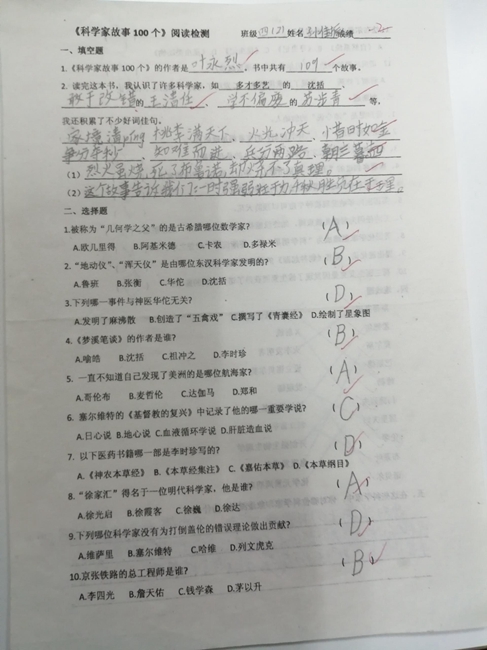 《科学家故事100个》阅读检测 班级 四(2) 姓名 成绩
一、填空题
1.《科学家故事100个》的作者是 叶永烈 ，书中共有 109 个故事。
2. 读完这本书，我认识了许多科学家，如 多才多艺 的 沈括 、
敢于改错的王清任 、 学不偏废 的 苏步青 等，
我还积累了不少好词佳句。
家境清 、桃李满天下、火光冲天、惜时如金
争分夺秒、知难而进、兵分两路、
（1）烈火虽烧死了布鲁诺，却烧不了真理。
（2）这个故事告诉我们：一时强弱在于力，千秋胜负在于理。
二、选择题
1.被称为“几何学之父”的是古希腊哪位数学家？ （A）
A.欧几里得 B.阿基米德 C.卡农 D.多禄米
2.“地动仪”、“浑天仪”是由哪位东汉科学家发明的？ （B）
A.鲁班 B.张衡 C.华佗 D.沈括
3.下列哪一事件与神医华佗无关？ （D）
A.发明了麻沸散 B.创造了“五禽戏” C.撰写了《青囊经》 D.绘制了星象图
4.《梦溪笔谈》的作者是谁？ （B）
A.喻皓 B.沈括 C.祖冲之 D.李时珍
5. 一直不知道自己发现了美洲的是哪位航海家？ （A）
A.哥伦布 B.麦哲伦 C.达伽马 D.郑和
6. 塞尔维特的《基督教的复兴》中记录了他的哪一重要学说？ （C）
A.日心说 B.地心说 C.血液循环学说 D.肝脏造血说
7. 以下医药书籍哪一部是李时珍写的？ （D）
A.《神农本草经》 B.《本草经集注》 C.《嘉佑本草》 D.《本草纲目》
8.“徐家汇”得名于一位明代科学家，他是谁？ （A）
A.徐光启 B.徐霞客 C.徐巍 D.徐达
9.下列哪位科学家没有为打倒盖伦的错误理论做出贡献？ （D）
A.维萨里 B.塞尔维特 C.哈维 D.列文虎克
10.京张铁路的总工程师是谁？ （B）
A.李四光 B.詹天佑 C.钱学森 D.茅以升